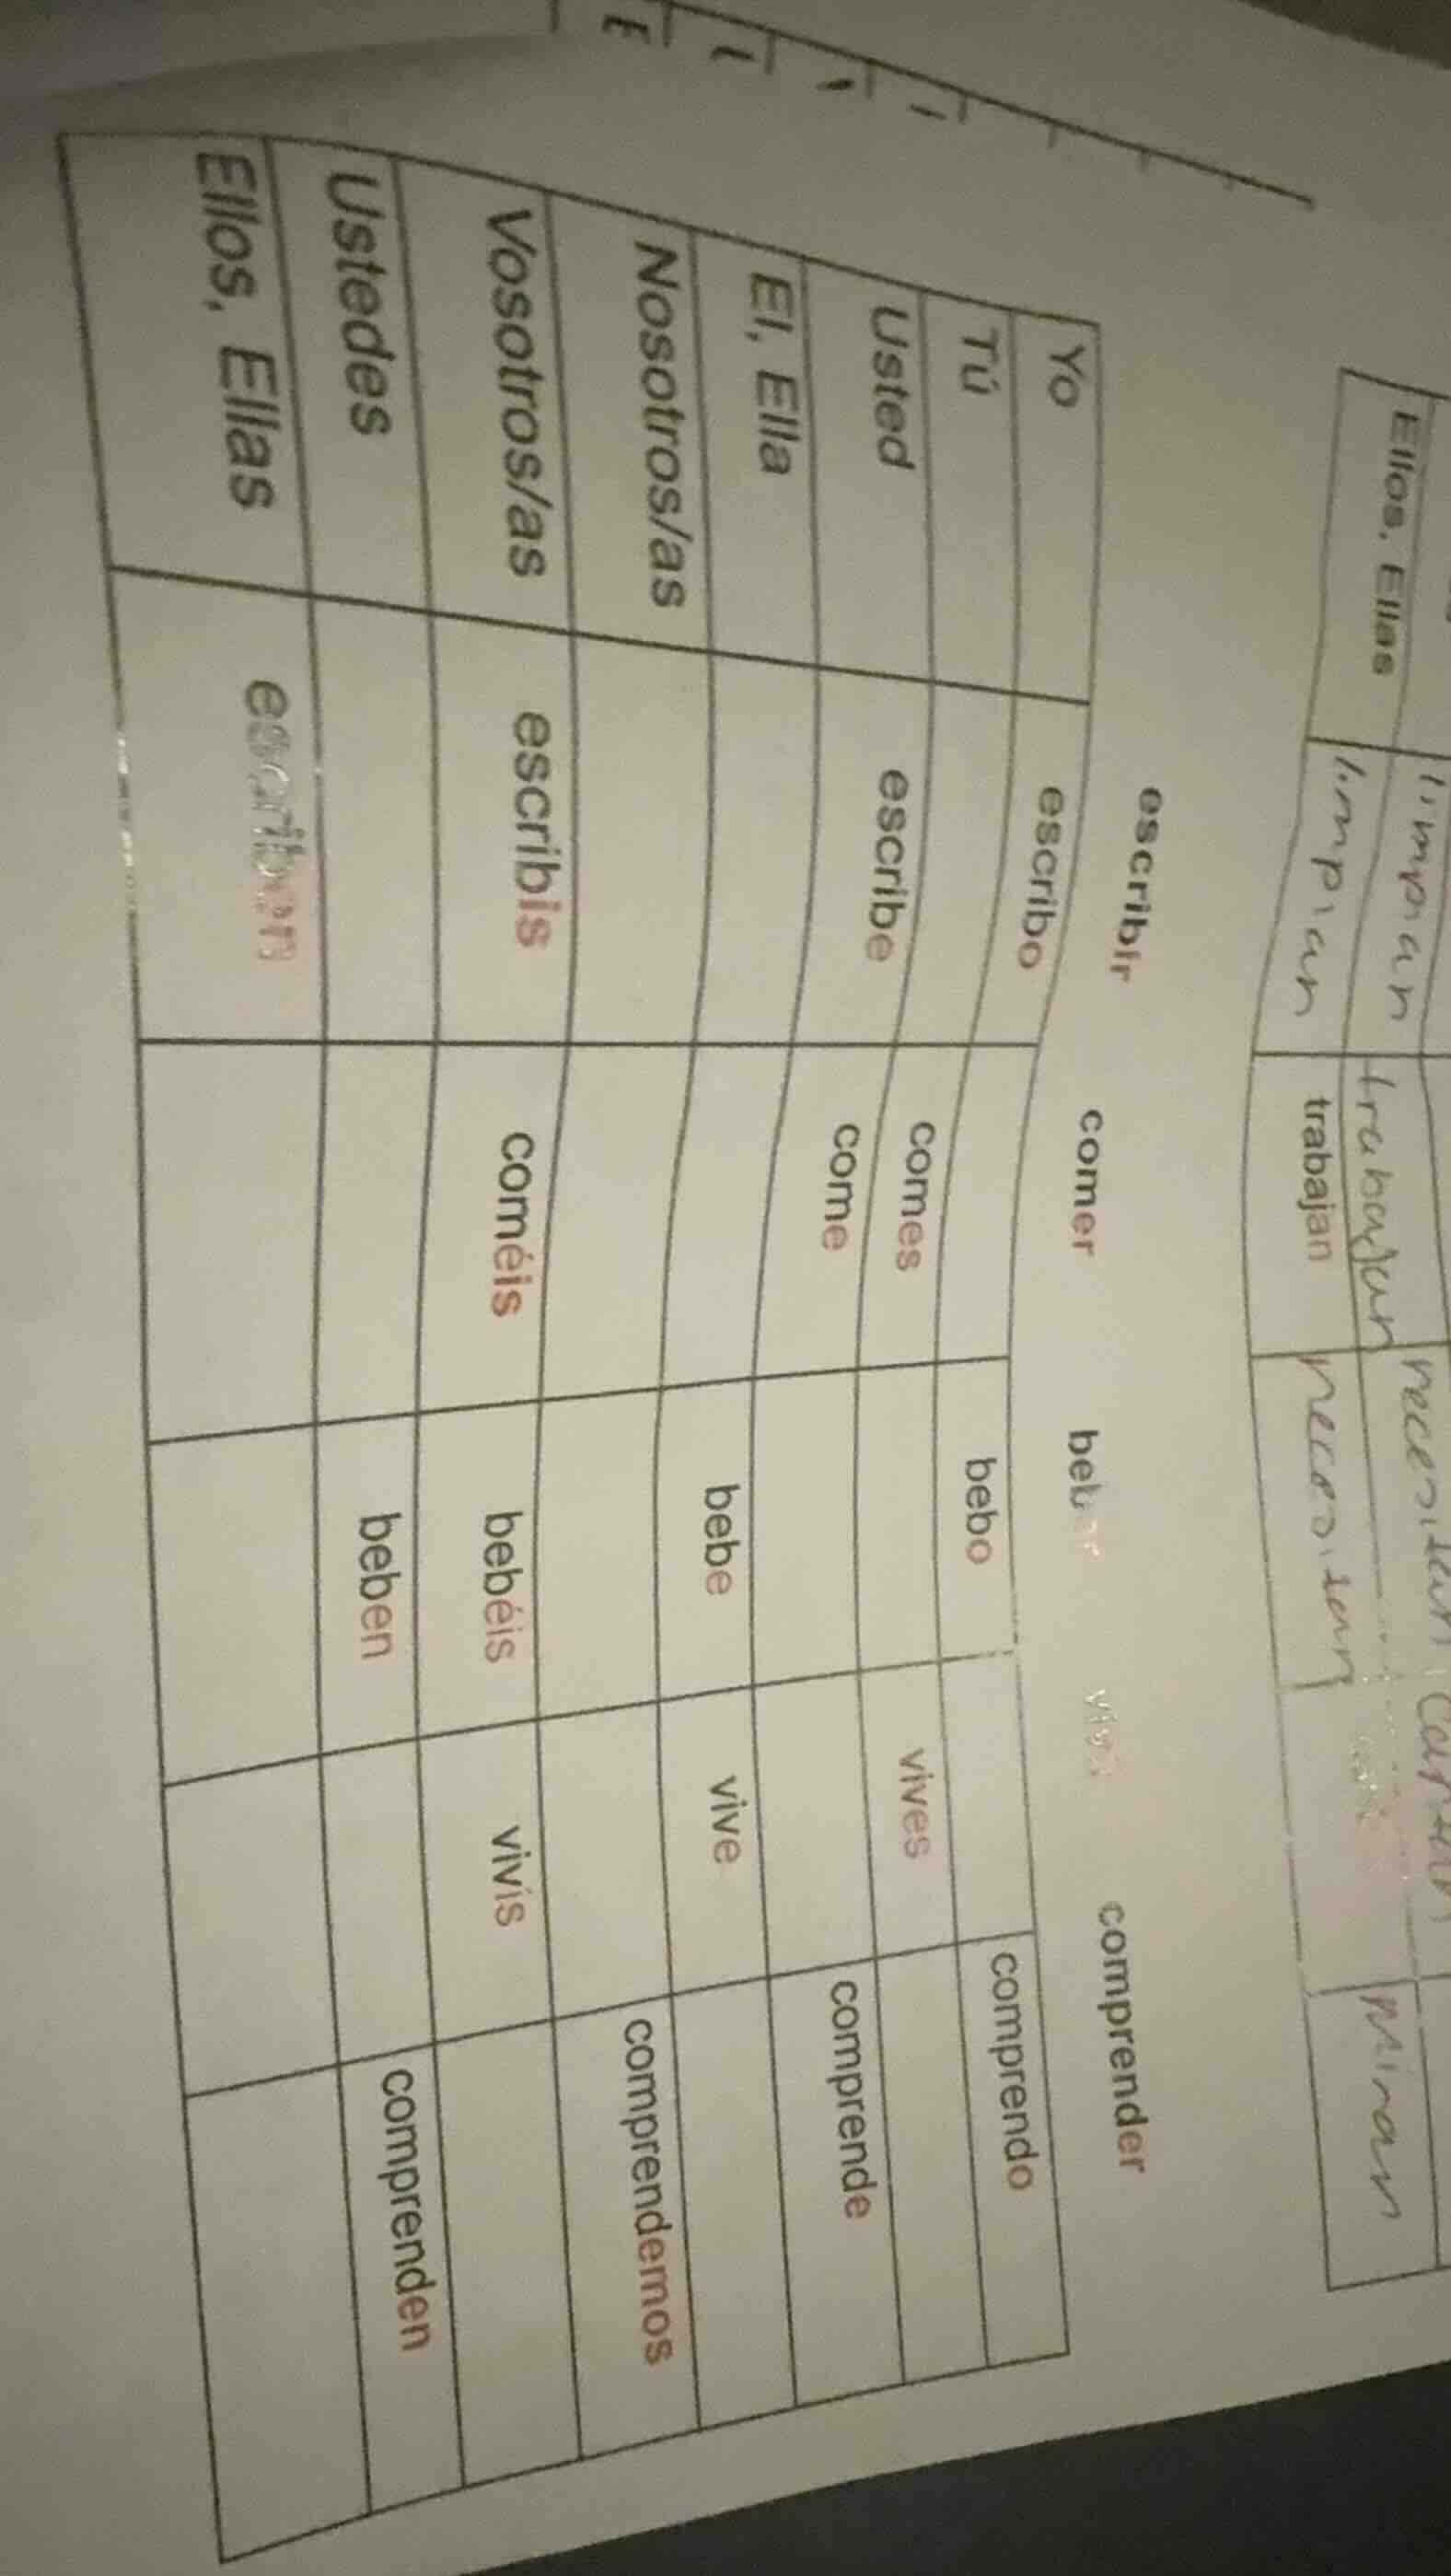 limpian trabajan necesitan cantan
Ellos, Ellas limpian trabajan necesitan miran
escribir comer beber vivir comprender
Yo escribo bebo comprendo
Tú comes vives
Usted escribe come comprende
El, Ella bebe vive
Nosotros/as comprendemos
Vosotros/as escribis coméis bebéis vivís
Ustedes beben comprenden
Ellos, Ellas escriben